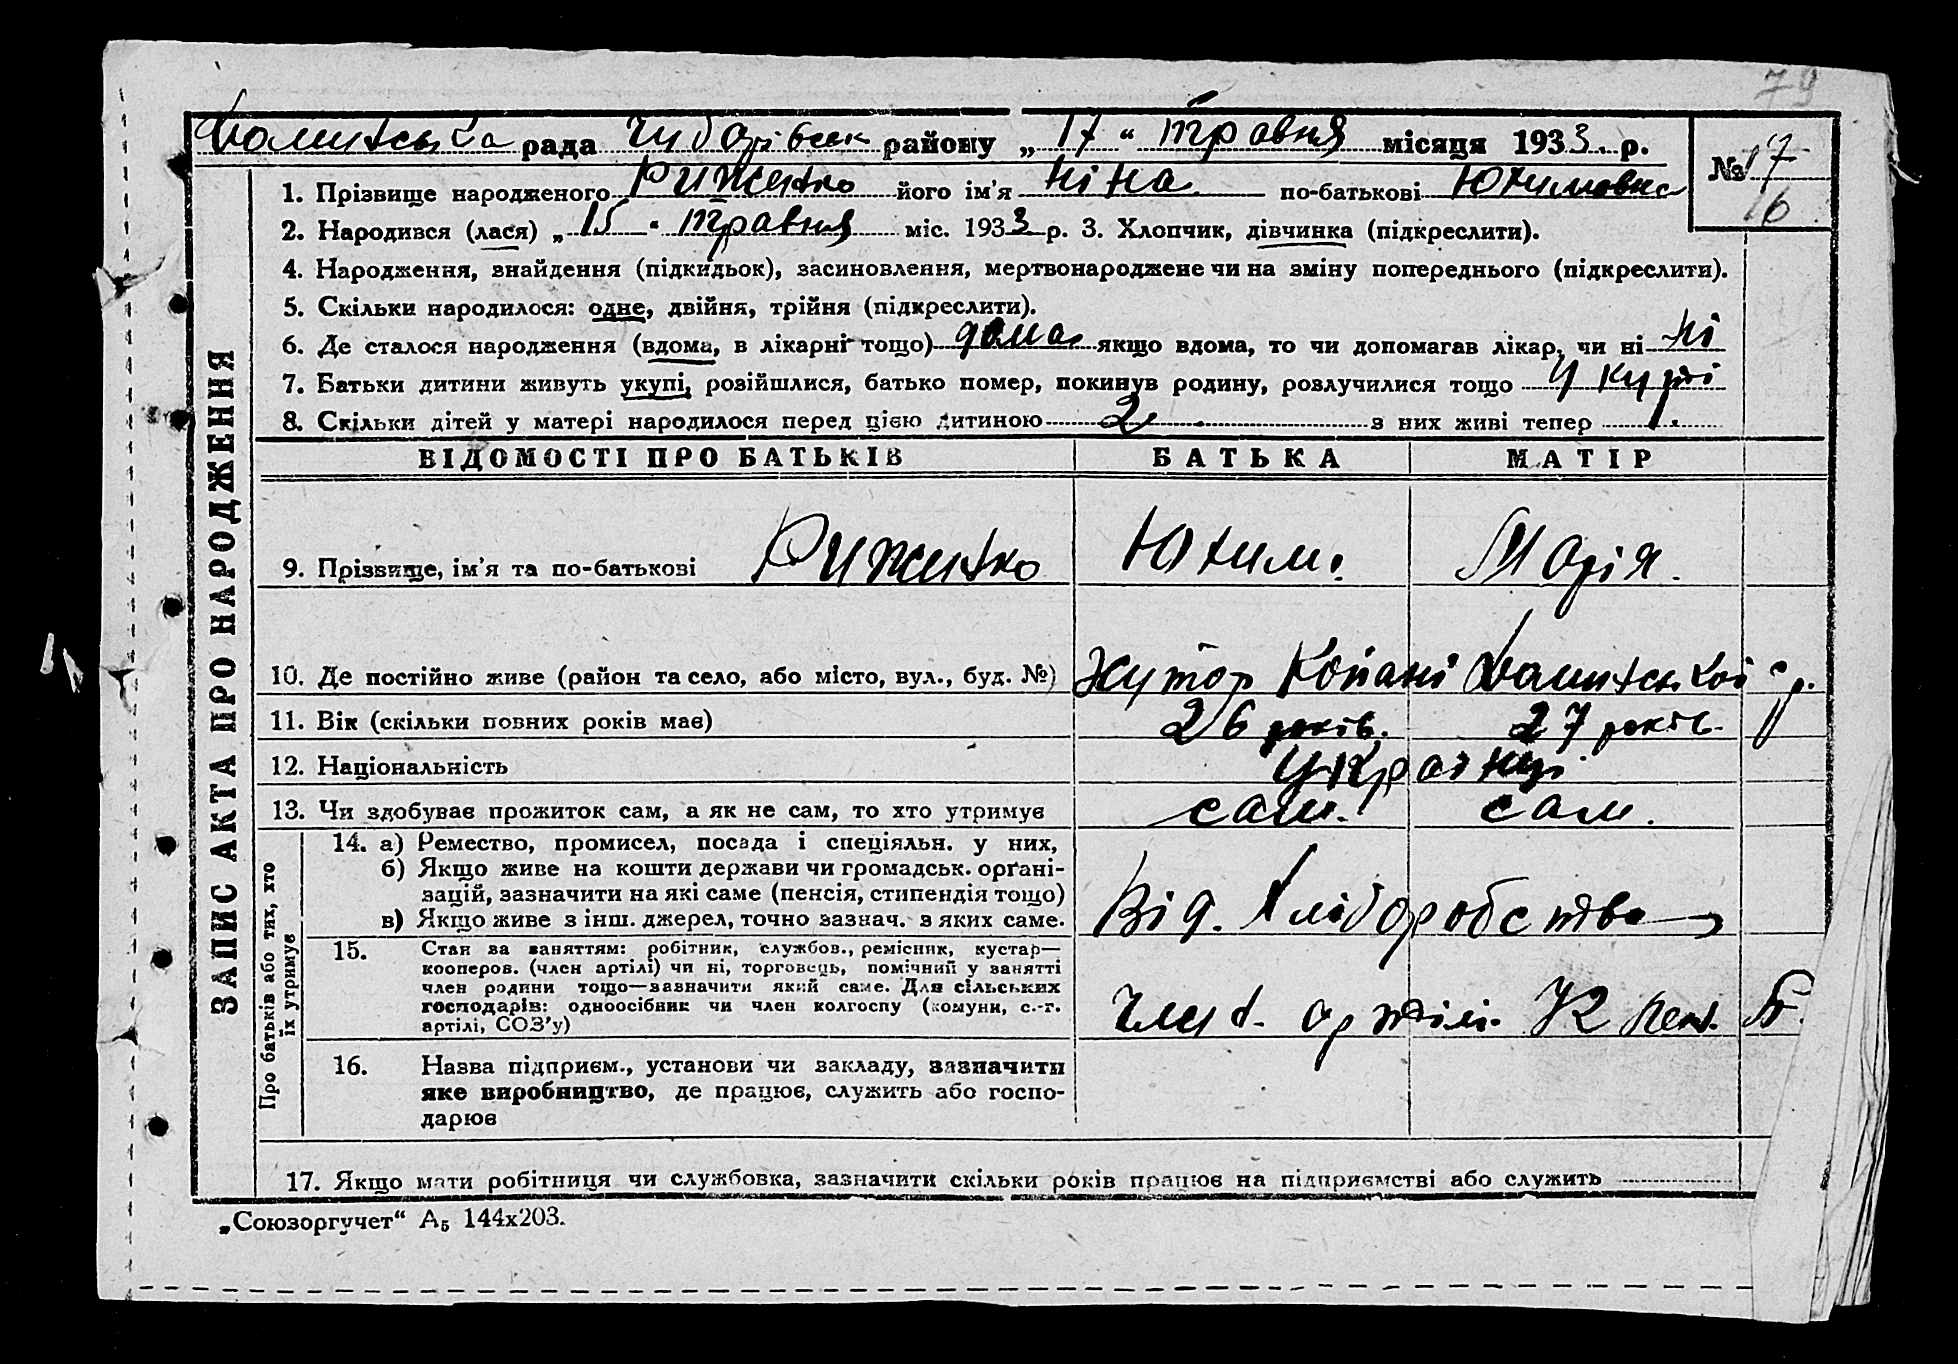 79
рада району „ 17 “ травня місяця 1933 р.
№ 17
16
1. Прізвище народженого Риженко його ім'я Ніна по-батькові Юхимовна
2. Народився (лася) „ 15 “ травня міс. 1933 р. 3. Хлопчик, дівчинка (підкреслити).
4. Народження, знайдення (підкидьок), засиновлення, мертвонароджене чи на зміну попереднього (підкреслити).
5. Скільки народилося: одне, двійня, трійня (підкреслити).
6. Де сталося народження (вдома, в лікарні тощо) дома якщо вдома, то чи допомагав лікар, чи ні ні
7. Батьки дитини живуть укупі, розійшлися, батько помер, покинув родину, розлучилися тощо у купі
8. Скільки дітей у матері народилося перед цією дитиною 2 з них живі тепер 1.
ЗАПИС АКТА ПРО НАРОДЖЕННЯ
ВІДОМОСТІ ПРО БАТЬКІВ БАТЬКА МАТІР
9. Прізвище, ім'я та по-батькові Риженко Юхим. Марія.
10. Де постійно живе (район та село, або місто, вул., буд. №) Хутор Копані с/р.
11. Вік (скільки повних років має) 26 років. 27 років.
12. Національність Українці
13. Чи здобуває прожиток сам, а як не сам, то хто утримує сам. сам.
Про батьків або тих, хто
їх утримує
14. а) Ремество, промисел, посада і спеціяльн. у них,
б) Якщо живе на кошти держави чи громадськ. орґані-
зацій, зазначити на які саме (пенсія, стипендія тощо)
в) Якщо живе з інш. джерел, точно зазнач. з яких саме.
Від. Хліборобства
15. Стан за заняттям: робітник, службов., ремісник, кустар—
кооперов. (член артілі) чи ні, торговець, помічний у занятті
член родини тощо—зазначити який саме. Для сільських
господарів: одноосібник чи член колгоспу (комуни, с.-г.
артілі, СОЗ'у)
Член. артілі.
16. Назва підприєм., установи чи закладу, зазначити
яке виробництво, де працює, служить або госпо-
дарює
17. Якщо мати робітниця чи службовка, зазначити скільки років працює на підприємстві або служить
„Союзоргучет“ А5 144х203.